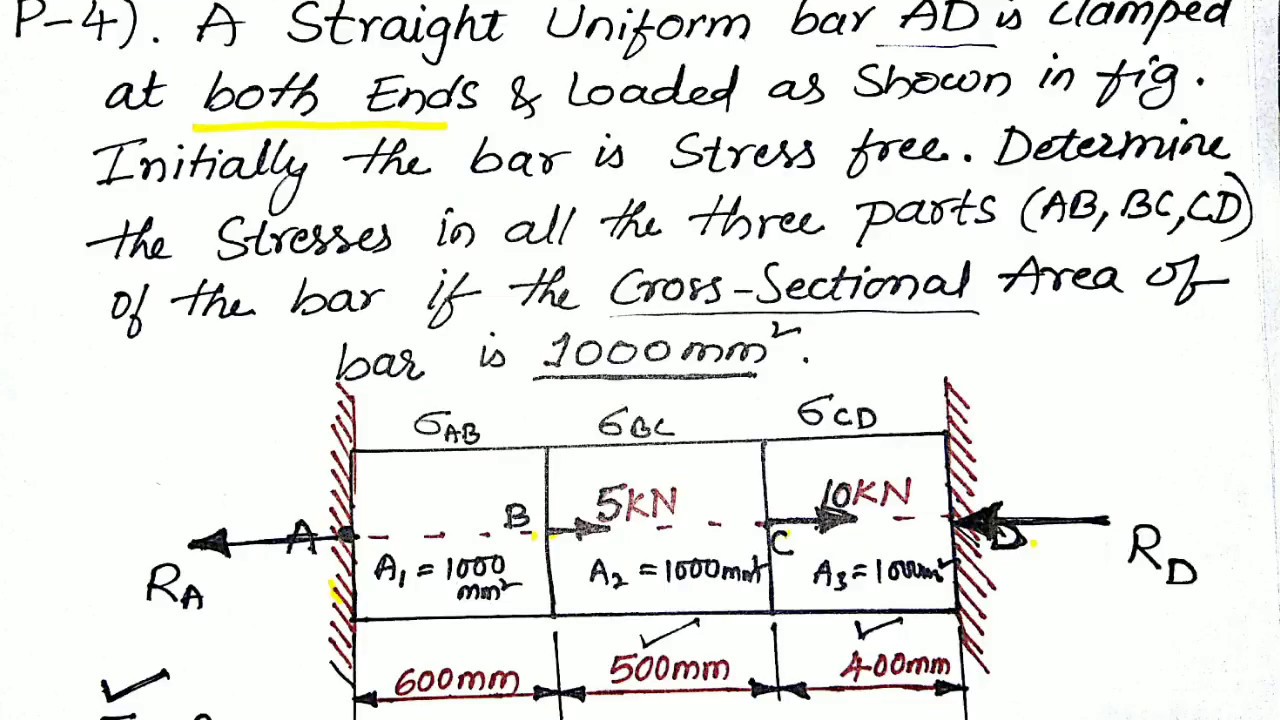 P-4). A Straight Uniform bar AD is clamped
at both Ends & Loaded as Shown in fig.
Initially the bar is Stress free. Determine
the Stresses in all the three parts (AB, BC, CD)
of the bar if the Cross-Sectional Area of
bar is 1000mm².
σAB σBC σCD
B 5KN 10KN
A C D
RA RD
A₁ = 1000 mm² A₂ = 1000mm² A₃ = 1000mm²
600mm 500mm 400mm